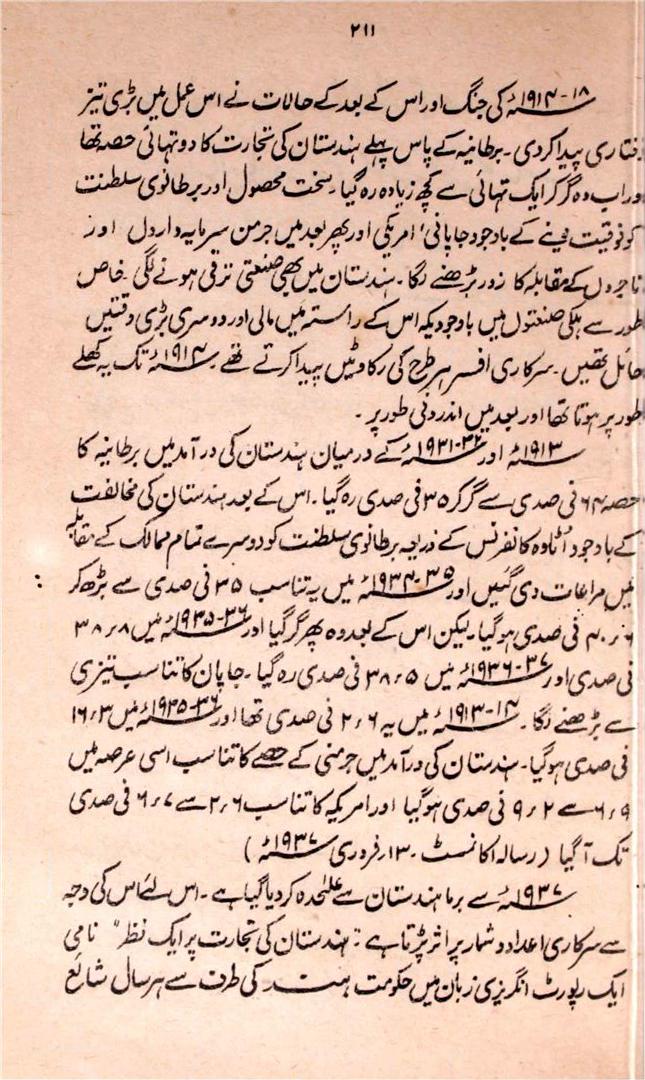 ۲۱۱
۱۸-۱۹۱۴ء کی جنگ اور اس کے بعد کے حالات نے اس عمل میں بڑی تیز
رفتاری پیدا کر دی۔ برطانیہ کے پاس پہلے ہندستان کی تجارت کا دو تہائی حصہ تھا
اور اب وہ گر کر ایک تہائی سے کچھ زیادہ رہ گیا۔ سخت محصول اور برطانوی سلطنت
کو فوقیت دینے کے باوجود جاپانی' امریکی اور پھر بعد میں جرمن سرمایہ داروں اور
تاجروں کے مقابلہ کا زور بڑھنے لگا۔ ہندستان میں بھی صنعتی ترقی ہونے لگی۔ خاص
طور سے ہلکی صنعتوں میں باوجودیکہ اس کے راستہ میں مالی اور دوسری بڑی دقتیں
حائل تھیں۔ سرکاری افسر ہر طرح کی رکاوٹیں پیدا کرتے تھے۔ ۱۹۱۴ء تک یہ کھلے
طور پر ہوتا تھا اور بعد میں اندرونی طور پر۔
۱۹۱۳ء اور ۳۲-۱۹۳۱ء کے درمیان ہندستان کی درآمد میں برطانیہ کا
حصہ ۶۴ فی صدی سے گر کر ۳۵ فی صدی رہ گیا۔ اس کے بعد ہندستان کی مخالفت
کے باوجود اٹاوہ کانفرنس کے ذریعہ برطانوی سلطنت کو دوسرے تمام ممالک کے مقابلہ
میں مراعات دی گئیں اور ۳۵-۱۹۳۴ء میں یہ تناسب ۳۵ فی صدی سے بڑھ کر
۴۰٫۶ فی صدی ہو گیا۔ لیکن اس کے بعد وہ پھر گر گیا اور ۳۶-۱۹۳۵ء میں ۳۸٫۸
فی صدی اور ۳۷-۱۹۳۶ء میں ۳۸٫۵ فی صدی رہ گیا۔ جاپان کا تناسب تیزی
سے بڑھنے لگا۔ ۱۴-۱۹۱۳ء میں یہ ۲٫۶ فی صدی تھا اور ۳۶-۱۹۳۵ء میں ۱۶٫۳
فی صدی ہو گیا۔ ہندستان کی درآمد میں جرمنی کے حصے کا تناسب اسی عرصہ میں
۶٫۹ سے ۹٫۲ فی صدی ہو گیا اور امریکہ کا تناسب ۲٫۶ سے ۶٫۷ فی صدی
تک آ گیا (رسالہ اکانمسٹ۔ ۱۳ فروری ۱۹۳۷ء)
۱۹۳۷ء سے برما ہندستان سے علٰحدہ کر دیا گیا ہے۔ اس لئے اس کی وجہ
سے سرکاری اعداد و شمار پر اثر پڑتا ہے "ہندستان کی تجارت پر ایک نظر" نامی
ایک رپورٹ انگریزی زبان میں حکومت ہند کی طرف سے ہر سال شائع